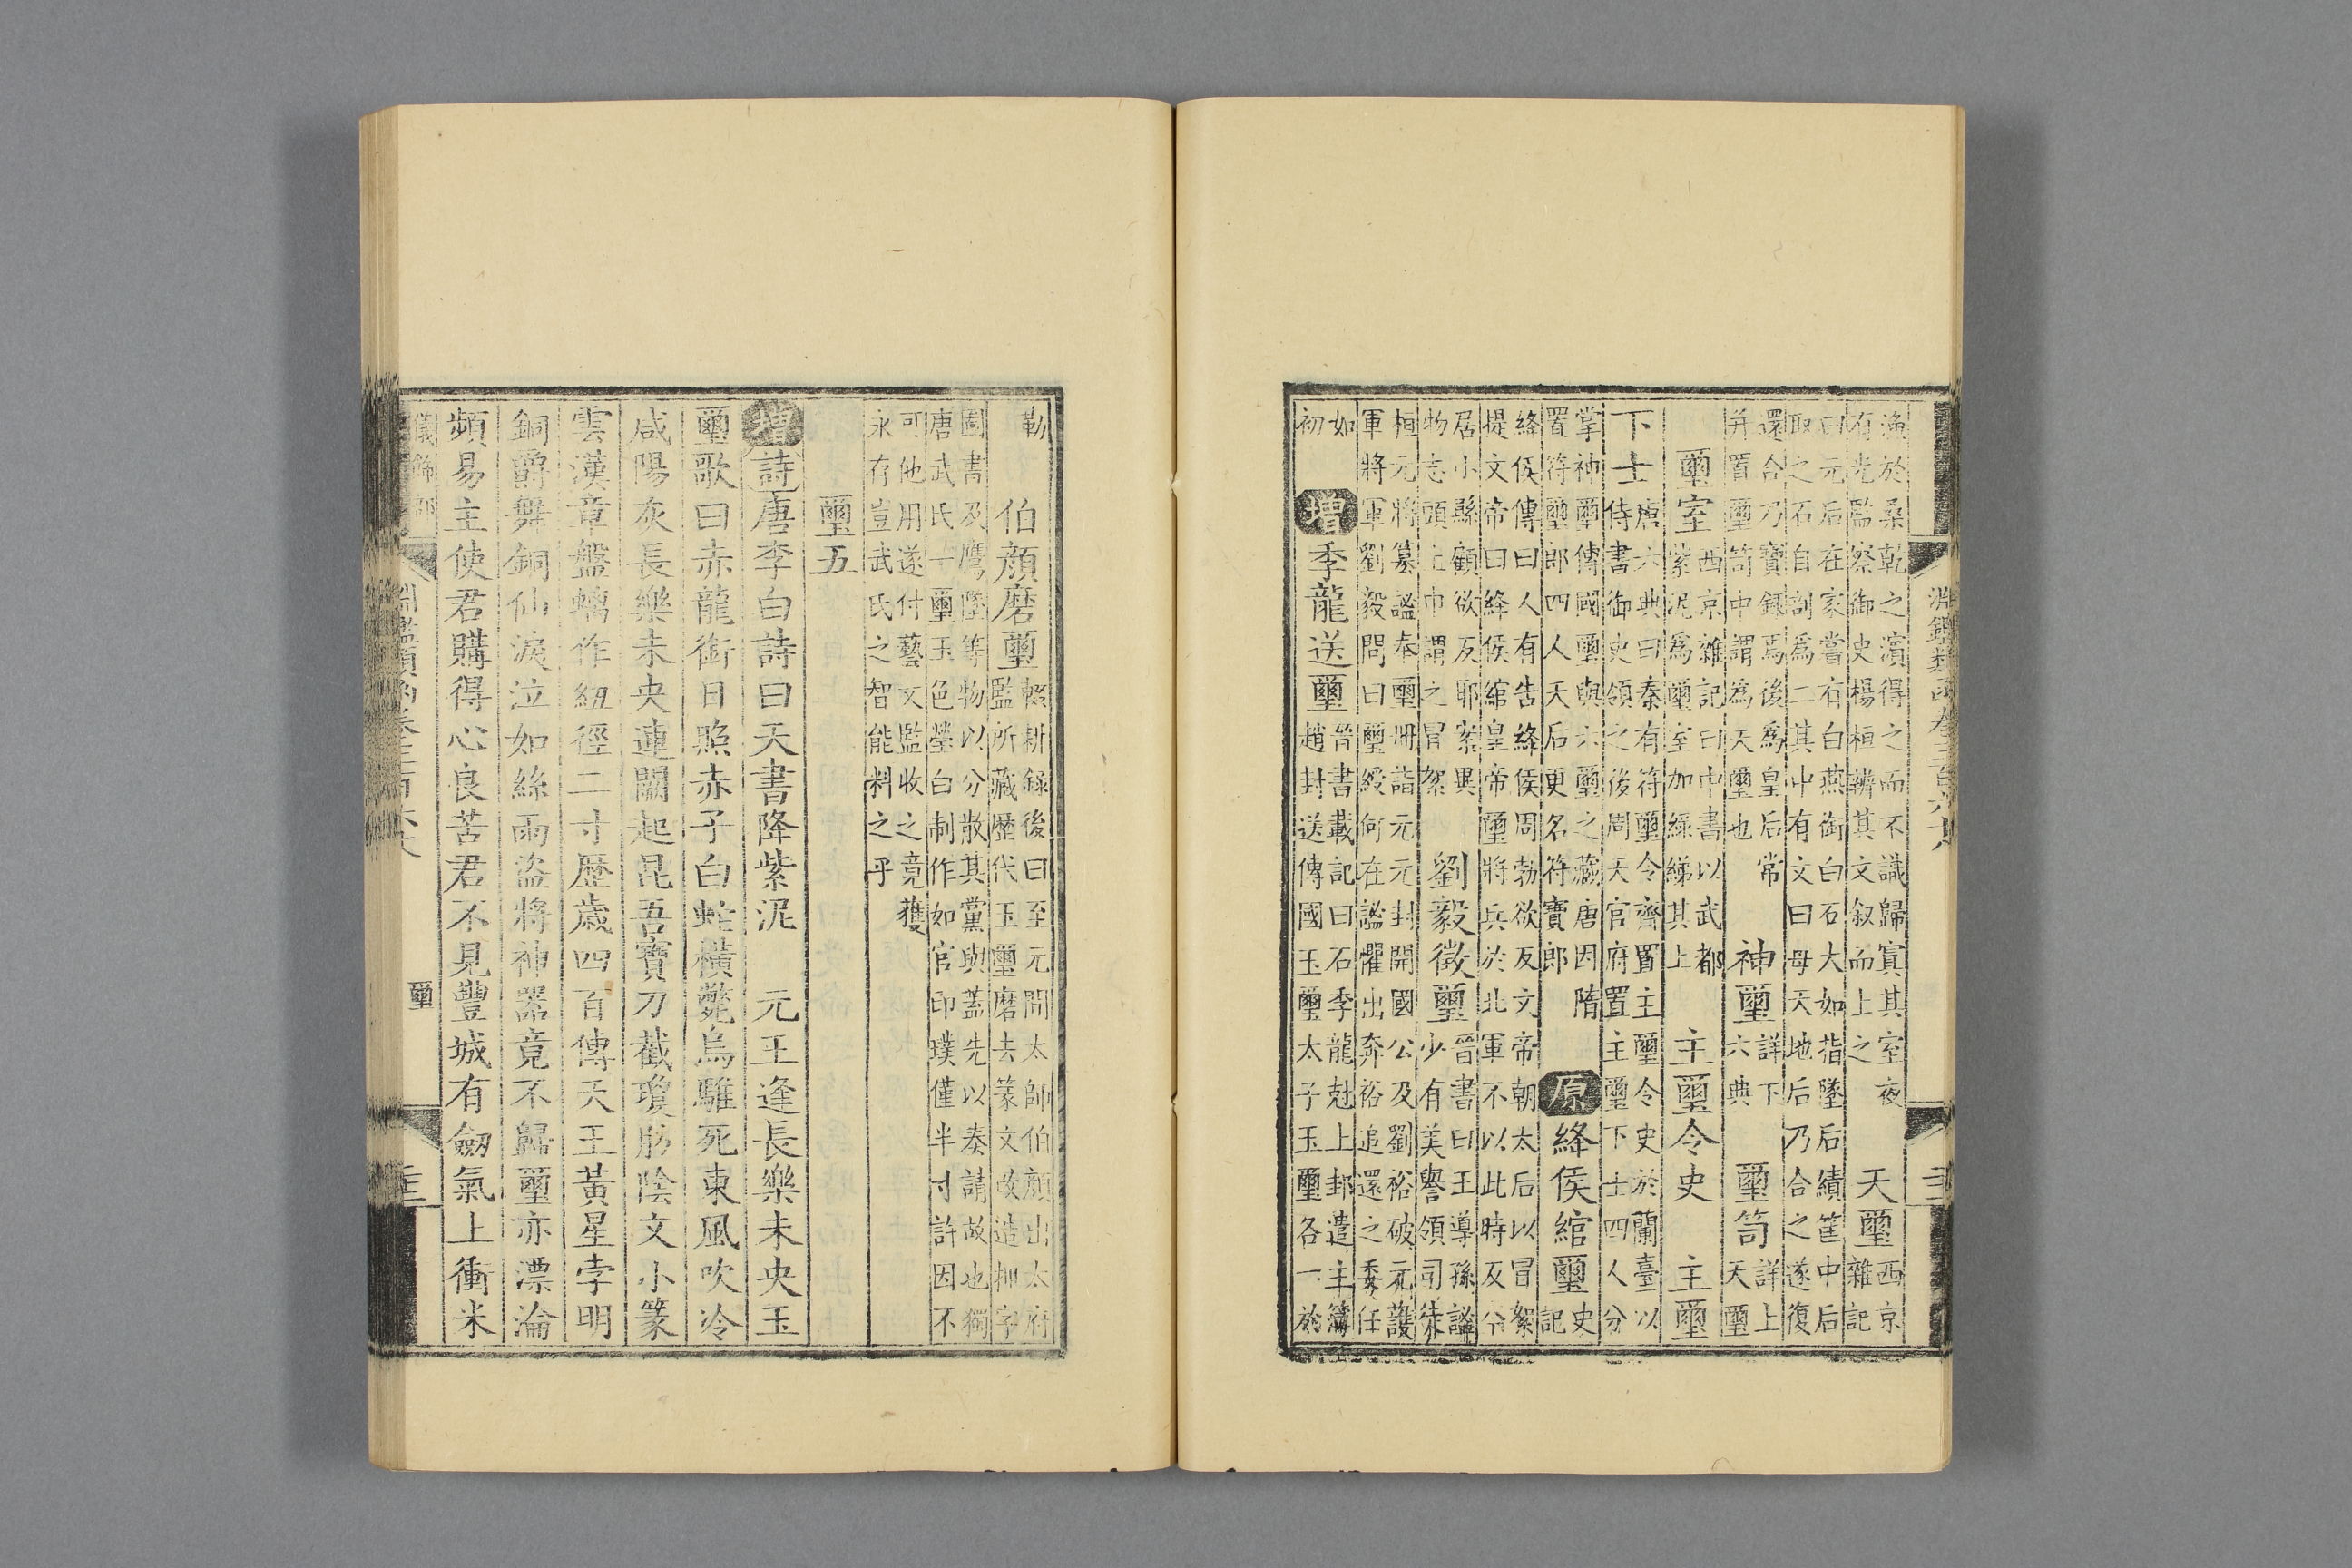 漁於桑乾之濱得之而不識歸寘其室夜
有光監察御史楊桓辨其文叙而上之
天璽西京
雜記
曰元后在家嘗有白燕銜白石大如指墜后績筐中后
取之石自剖爲二其中有文曰母天地后乃合之遂復
還合乃寶錄焉後爲皇后常
并置璽笥中謂爲天璽也
神璽詳下
六典
璽笥詳上
天璽
璽室西京雜記曰中書以武都
紫泥爲璽至加綠綈其上
主璽令史 主璽
下士唐六典曰秦有符璽令齊置主璽令史於蘭臺以
侍書御史領之後周天官府置主璽下士四人分
掌神璽傳國璽與六璽之藏唐因隋
置符璽郎四人天后更名符寶郎
原絳侯綰璽史
記
絳侯傳曰人有告絳侯周勃欲反文帝朝太后以冒絮
提文帝曰絳侯綰皇帝璽將兵於北軍不以此時反今
居小縣顧欲反耶案異
物志頭上巾謂之冒絮
劉毅徵璽晉書曰王導孫謐
少有美譽領司徒
桓元將篡謐奉璽冊詣元元封開國公及劉裕破元護
軍將軍劉毅問曰璽綬何在謐懼出奔裕追還之委任
如
初
增季龍送璽晉書載記曰石季龍尅上邽遣主簿
趙封送傳國玉璽太子玉璽各一於
勒
伯顏磨璽輟耕錄後曰至元間太師伯顏出太府
監所藏歷代玉璽磨去篆文改造押字
圖書及鷹墜等物以分散其黨與蓋先以奏請故也獨
唐武氏一璽玉色瑩白制作如官印璞僅半寸許因不
可他用遂付藝文監收之竟獲
永存豈武氏之智能料之乎
璽五
增詩唐李白詩曰天書降紫泥 元王逢長樂未央玉
璽歌曰赤龍銜日照赤子白蛇橫斃烏騅死東風吹冷
咸陽灰長樂未央連闕起昆吾寶刀截瓊肪陰文小篆
雲漢章盤螭作紐徑二寸歷歲四百傳天王黃星孛明
銅爵舞銅仙淚泣如絲雨盜將神器竟不歸璽亦漂淪
頻易主使君購得心良苦君不見豐城有劒氣上衝米
璽